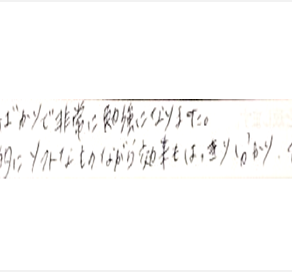 ばかりで非常に勉強になりました。
的にソフトなものながら効果もはっきり分かり、